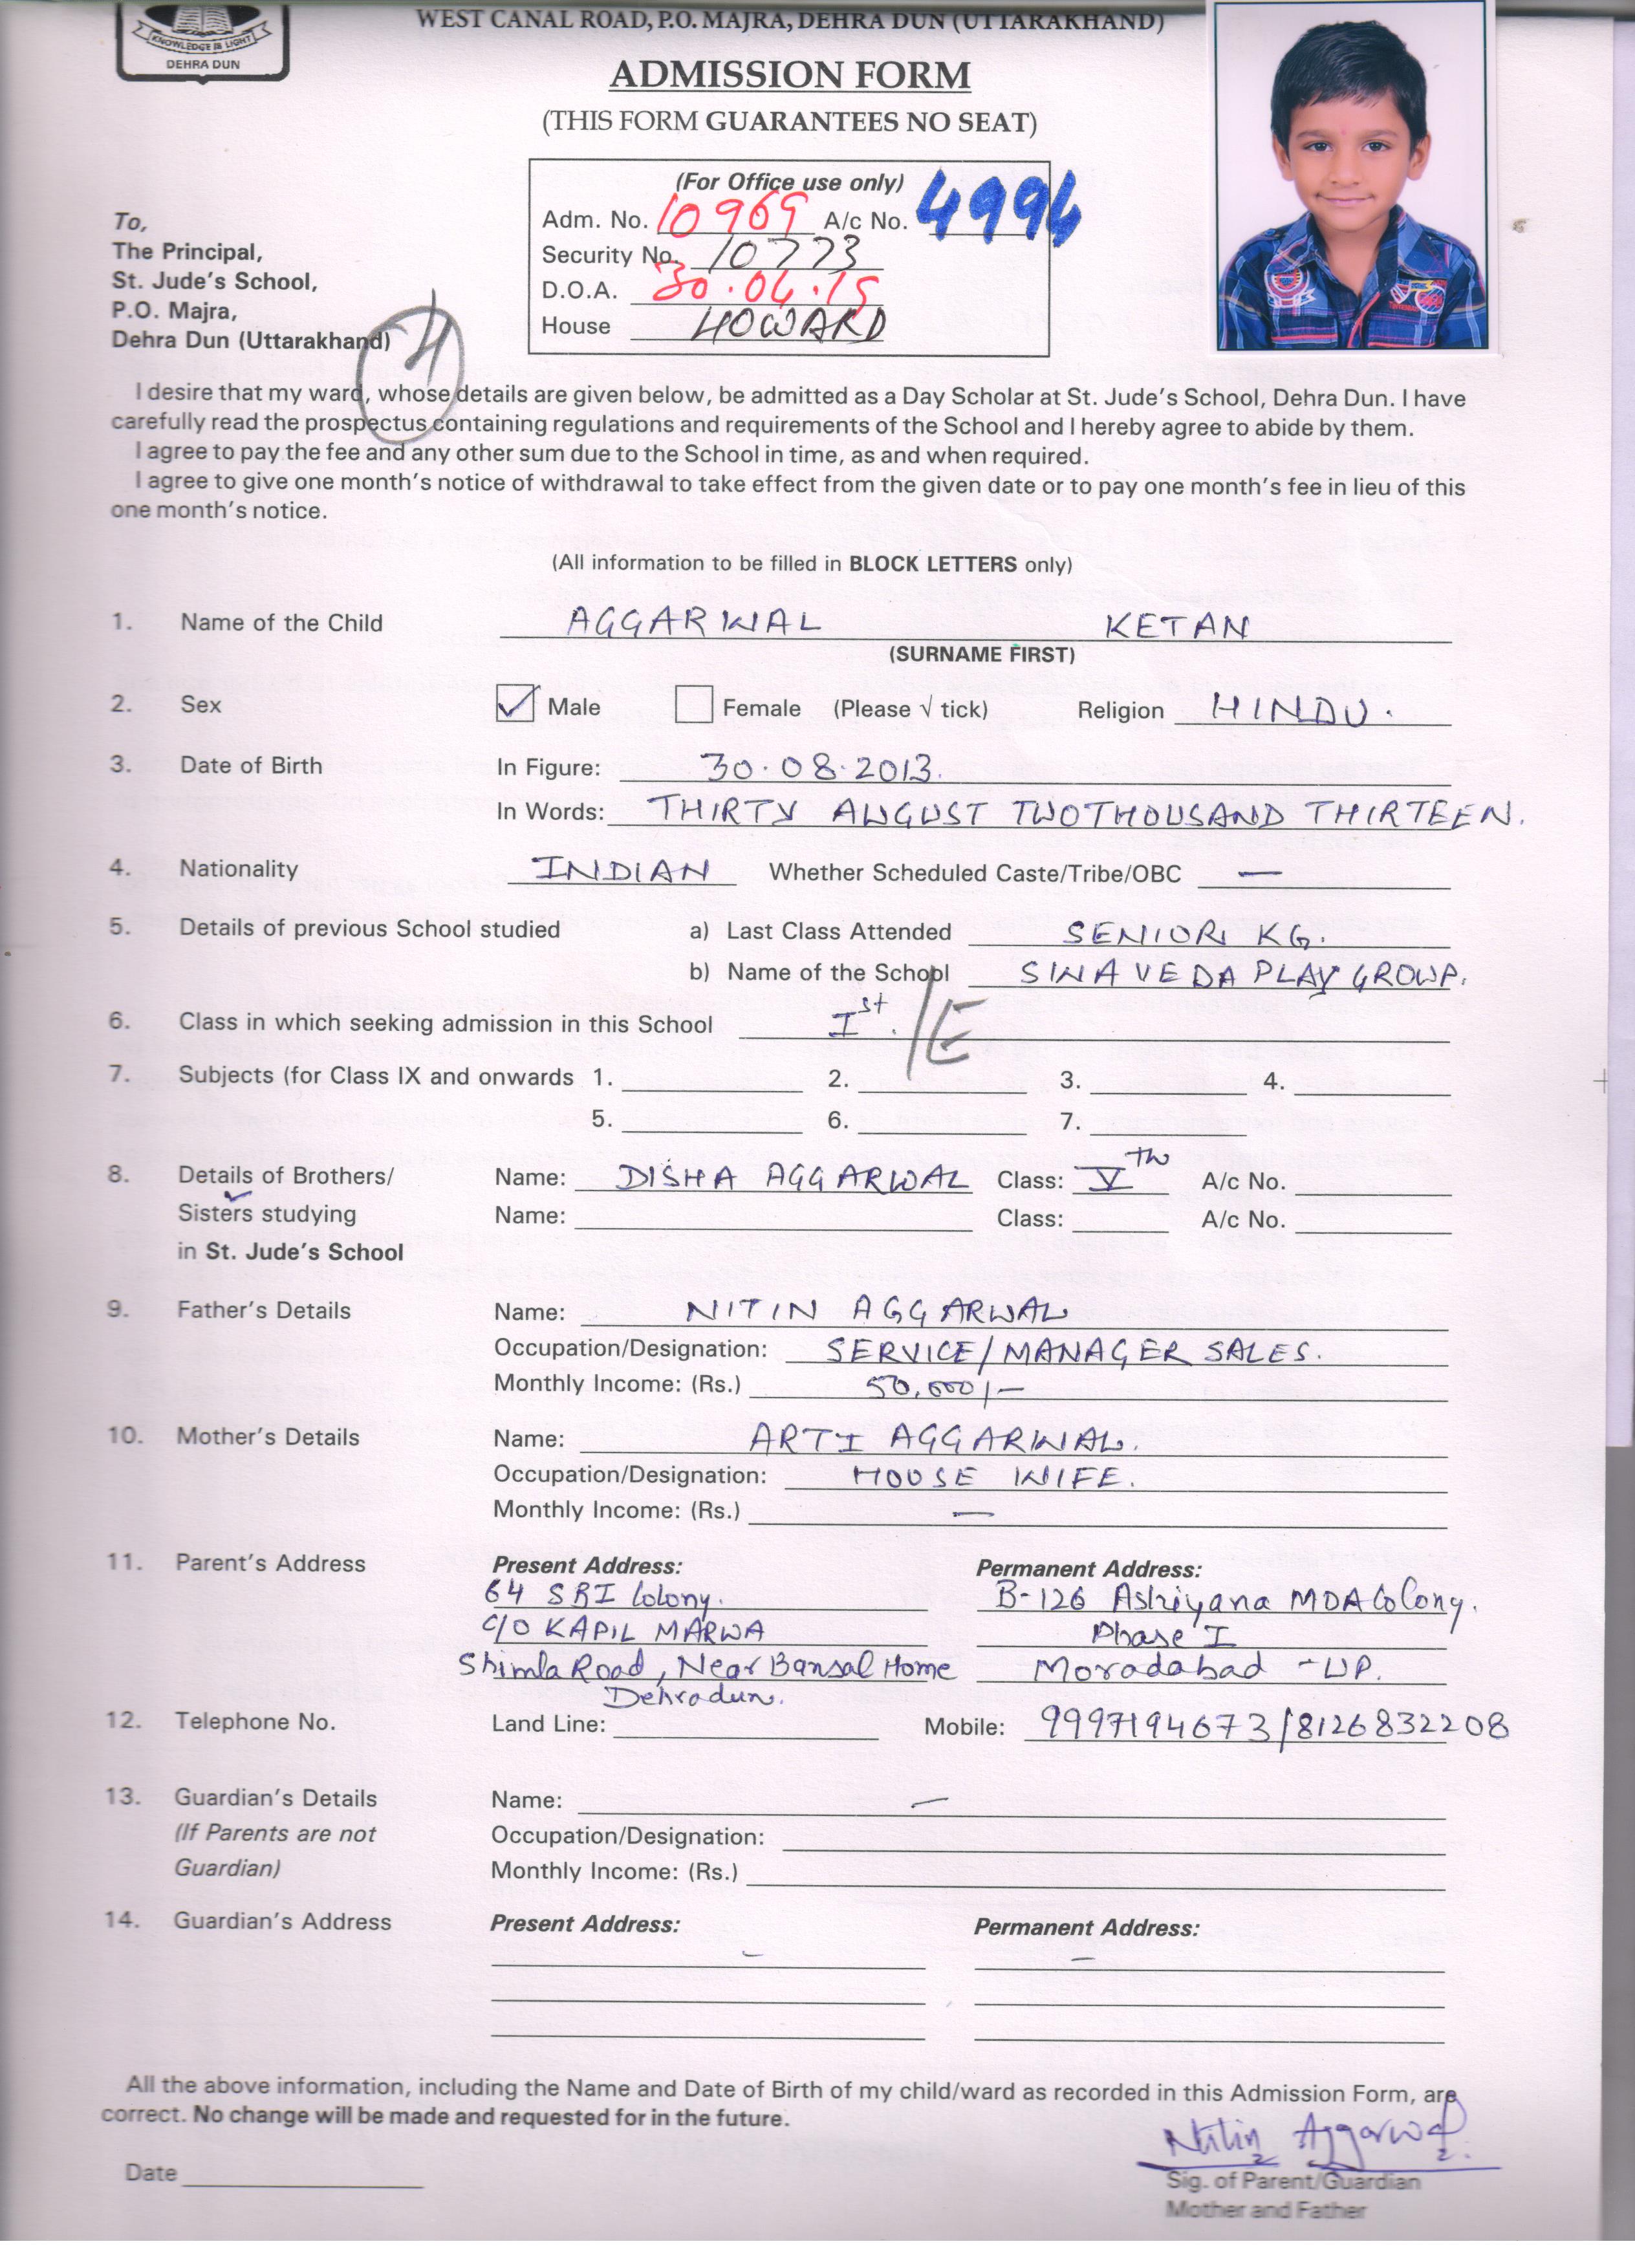 KNOWLEDGE IS LIGHT
DEHRA DUN
WEST CANAL ROAD, P.O. MAJRA, DEHRA DUN (UTTARAKHAND)
ADMISSION FORM
(THIS FORM GUARANTEES NO SEAT)
(For Office use only)
Adm. No. 10969 A/c No. 4994
Security No. 10773
D.O.A. 30.04.19
House HOWARD
To,
The Principal,
St. Jude's School,
P.O. Majra,
Dehra Dun (Uttarakhand)
4
I desire that my ward, whose details are given below, be admitted as a Day Scholar at St. Jude's School, Dehra Dun. I have
carefully read the prospectus containing regulations and requirements of the School and I hereby agree to abide by them.
I agree to pay the fee and any other sum due to the School in time, as and when required.
I agree to give one month's notice of withdrawal to take effect from the given date or to pay one month's fee in lieu of this
one month's notice.
(All information to be filled in BLOCK LETTERS only)
1. Name of the Child AGGARWAL KETAN
(SURNAME FIRST)
2. Sex ✓ Male Female (Please √ tick) Religion HINDU.
3. Date of Birth In Figure: 30.08.2013.
In Words: THIRTY AUGUST TWOTHOUSAND THIRTEEN.
4. Nationality INDIAN Whether Scheduled Caste/Tribe/OBC —
5. Details of previous School studied a) Last Class Attended SENIOR KG.
b) Name of the School SWAVEDA PLAY GROUP.
6. Class in which seeking admission in this School Ist. /E
7. Subjects (for Class IX and onwards 1. 2. 3. 4.
5. 6. 7.
8. Details of Brothers/ Name: DISHA AGGARWAL Class: Vth A/c No.
Sisters studying Name: Class: A/c No.
in St. Jude's School
9. Father's Details Name: NITIN AGGARWAL
Occupation/Designation: SERVICE/MANAGER SALES.
Monthly Income: (Rs.) 50,000/-
10. Mother's Details Name: ARTI AGGARWAL.
Occupation/Designation: HOUSE WIFE.
Monthly Income: (Rs.) —
11. Parent's Address Present Address: Permanent Address:
64 SBI Colony. B-126 Ashiyana MDA Colony.
C/O KAPIL MARWA Phase I
Shimla Road, Near Bansal Home Moradabad - UP.
Dehradun.
12. Telephone No. Land Line: Mobile: 9997194673/8126832208
13. Guardian's Details Name: —
(If Parents are not Occupation/Designation:
Guardian) Monthly Income: (Rs.)
14. Guardian's Address Present Address: Permanent Address:
- -
All the above information, including the Name and Date of Birth of my child/ward as recorded in this Admission Form, are
correct. No change will be made and requested for in the future.
Nitin Aggarwal
Date Sig. of Parent/Guardian
Mother and Father